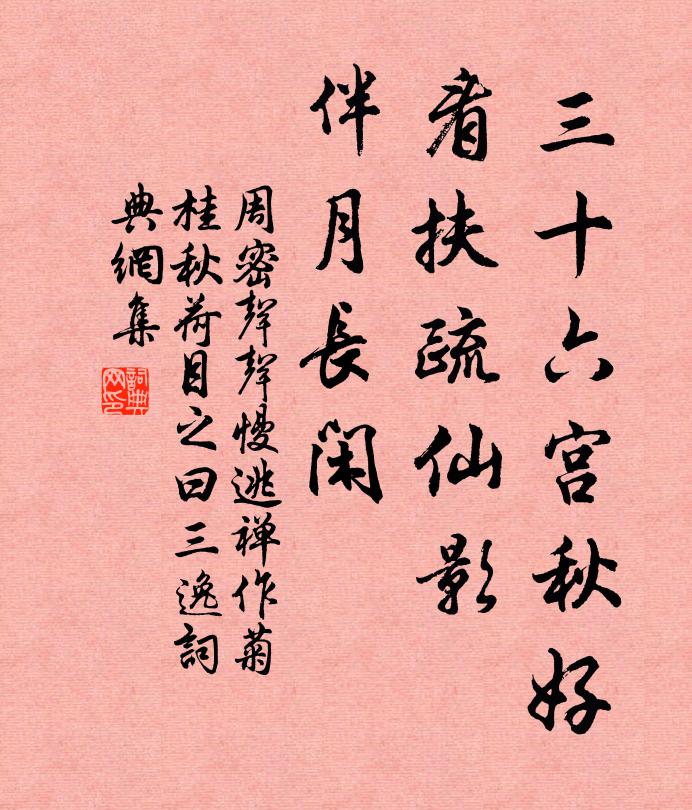 三十六宫秋好
看扶疏仙影
伴月長閑
周密聲聲慢逃禅作菊
桂秋荷目之曰三逸詞
典網集
詞典網印